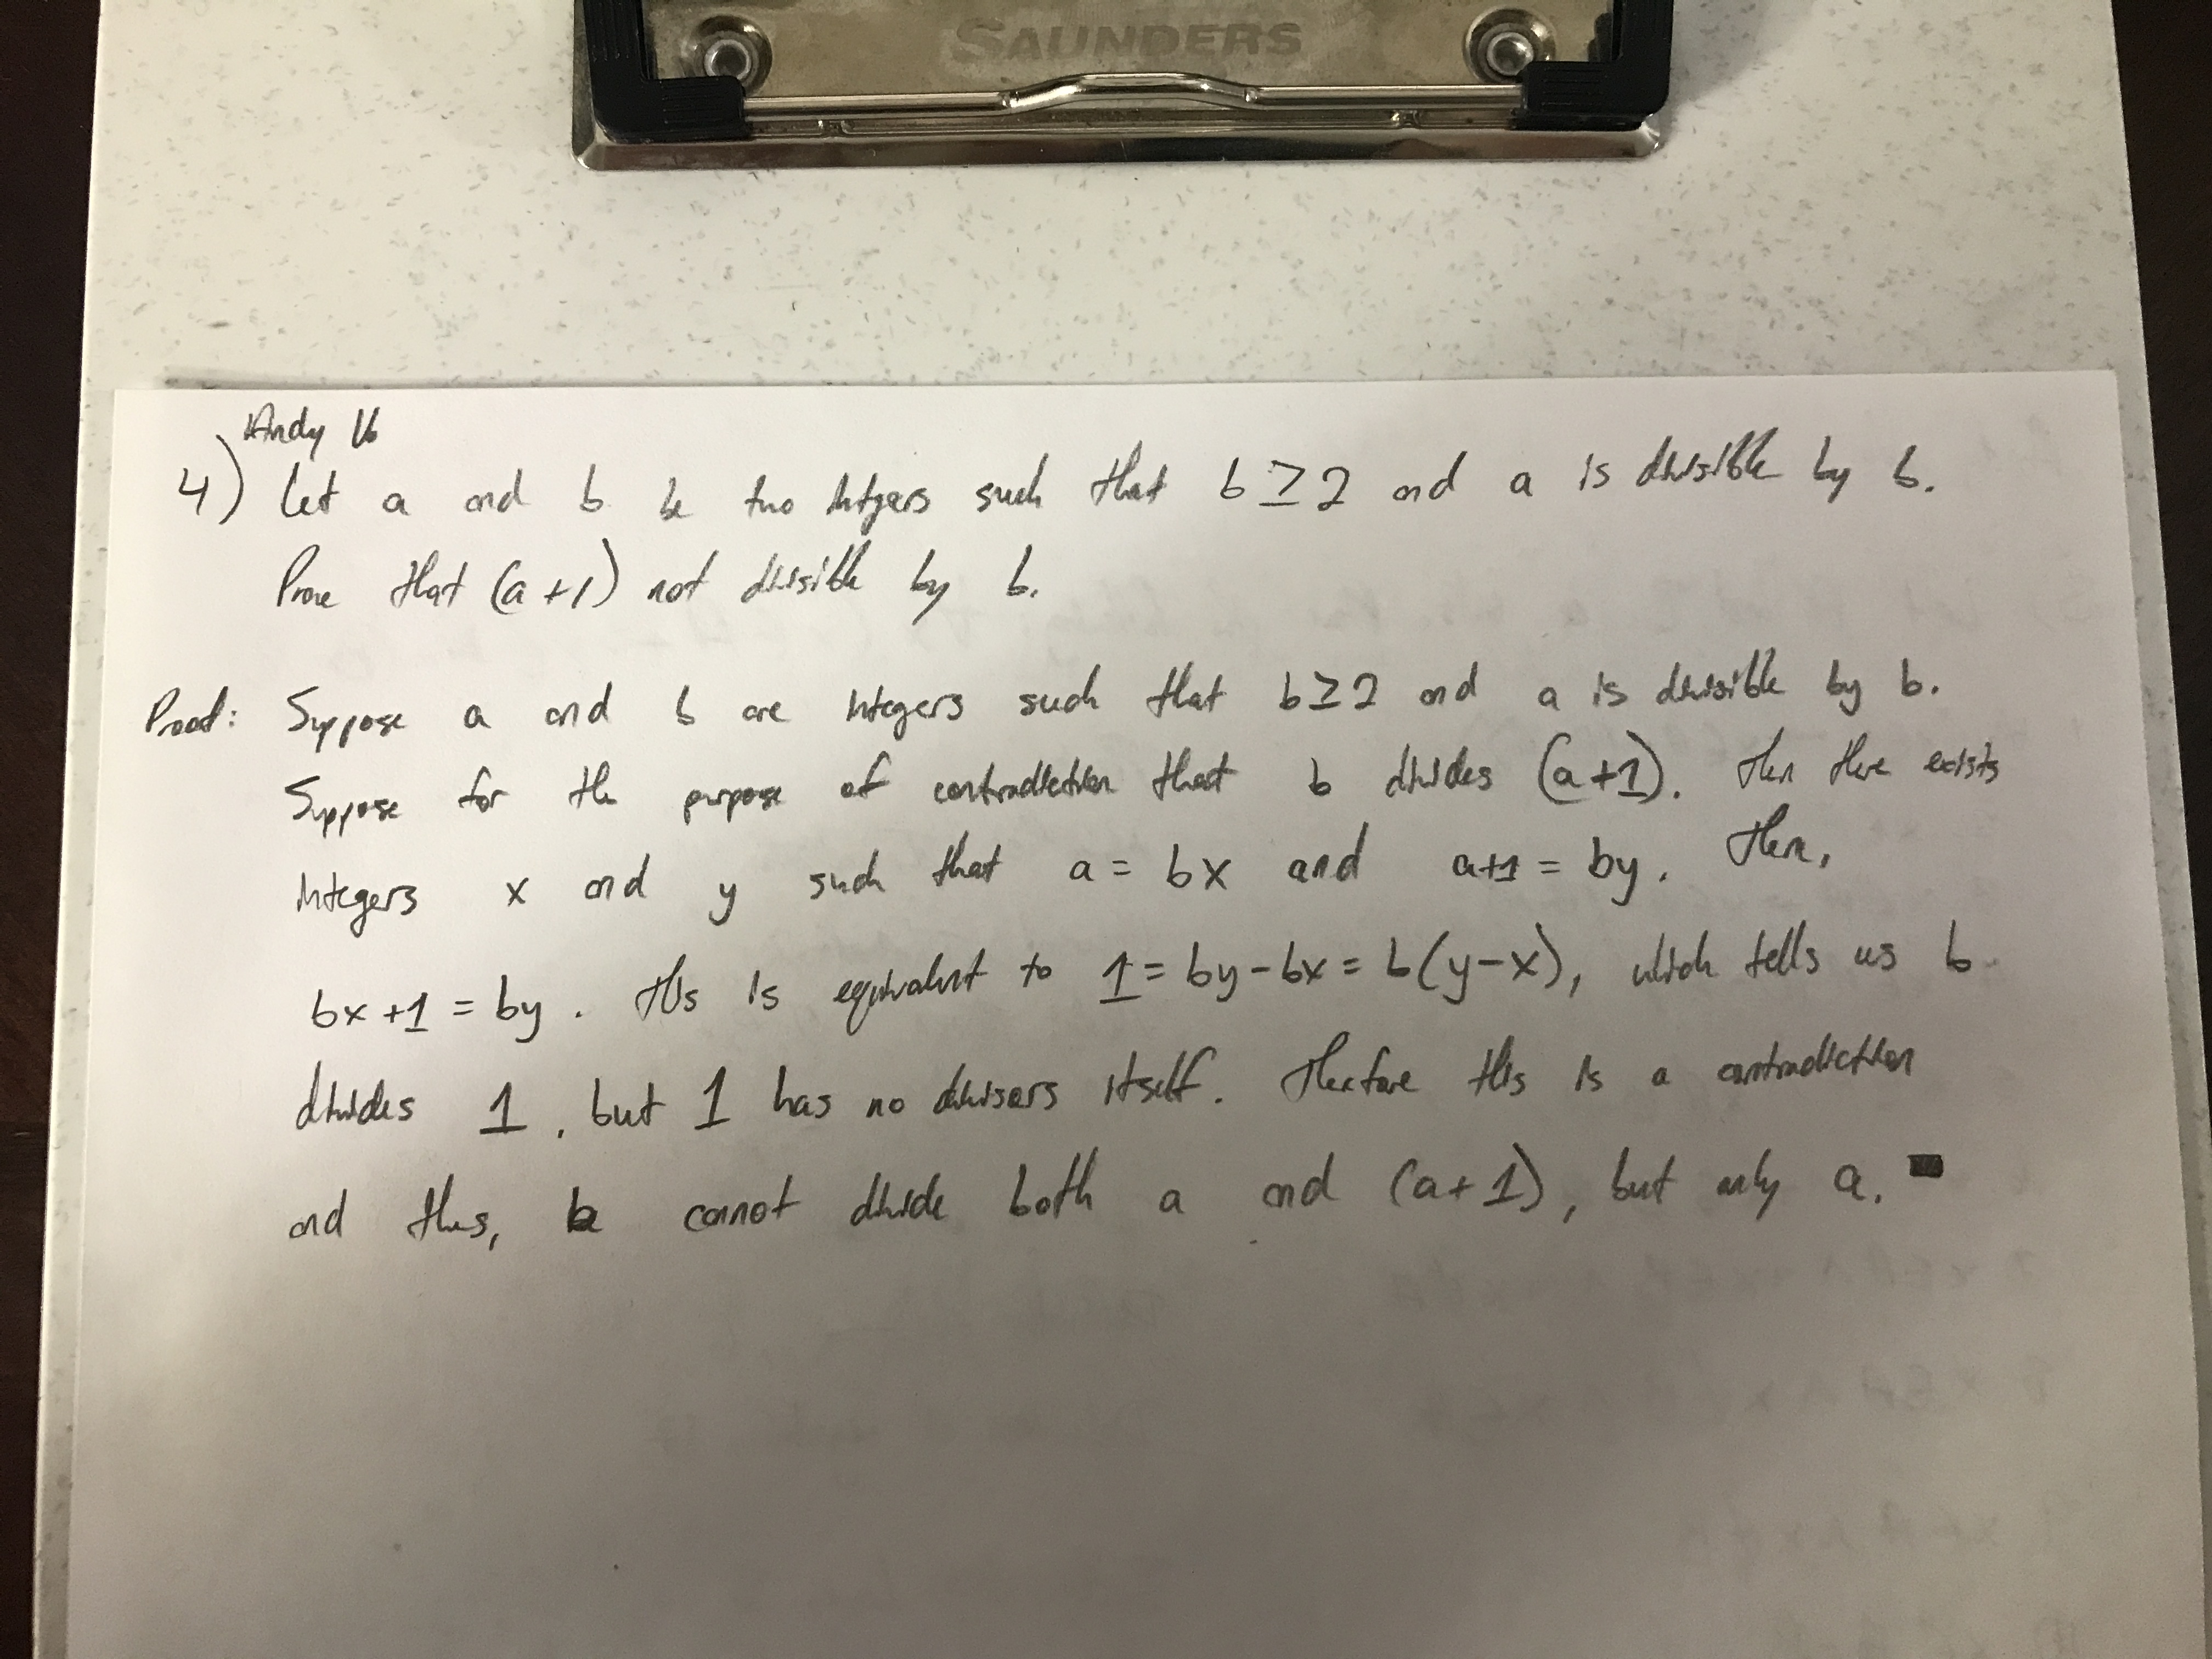 4) Let a and b be two integers such that b ≥ 2 and a is divisible by b.
Prove that (a+1) not divisible by b.
Proof: Suppose a and b are integers such that b ≥ 2 and a is divisible by b.
Suppose for the purpose of contradiction that b divides (a+1). Then there exists
integers x and y such that a = bx and a+1 = by. Then,
bx+1 = by. This is equivalent to 1 = by - bx = b(y-x), which tells us b
divides 1, but 1 has no divisors itself. Therefore this is a contradiction
and thus, b cannot divide both a and (a+1), but only a. ■
SAUNDERS